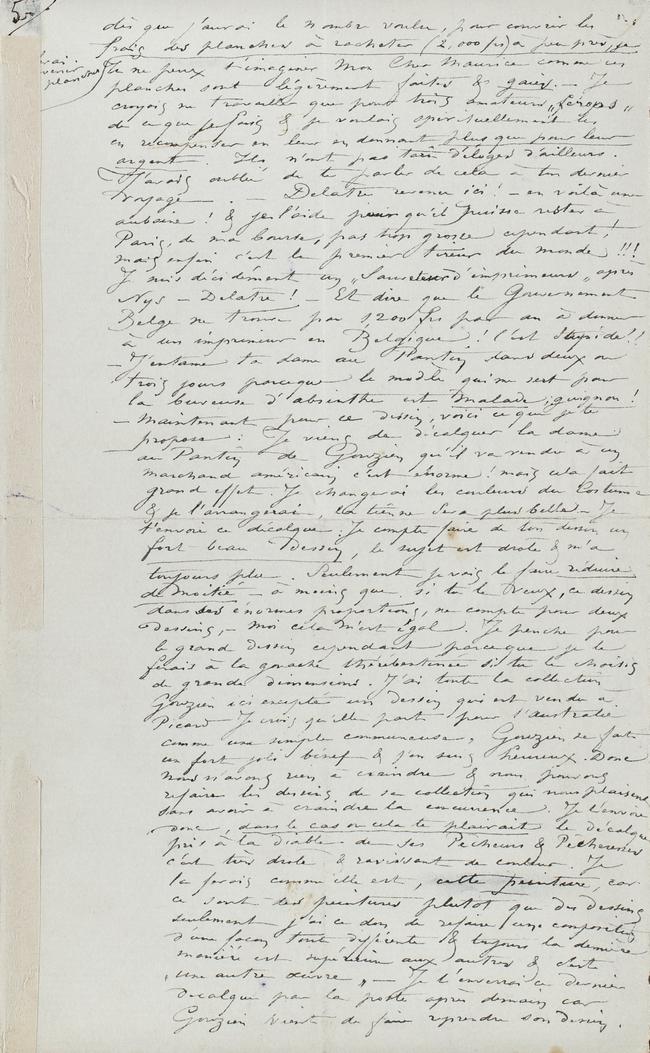 5
dès que j'aurai le nombre voulu, pour couvrir les
frais des planches à racheter (2,000 frs) à peu près, je
planches
Tu ne peux t'imaginer Mon Cher Maurice comme ces
planches sont légèrement faites & gaies. — Je
croyais ne travailler que pour trois amateurs "férops"
de ce que je fais & je voulais spirituellement les
en récompenser en leur en donnant plus que pour leur
argent. Ils n'ont pas tari d'éloges d'ailleurs.
J'avais oublié de te parler de cela à ton dernier
voyage — . — Delatre revenu ici! — en voilà une
aubaine! & je l'aide pour qu'il puisse rester à
Paris, de ma bourse, pas trop grosse cependant!
mais enfin c'est le premier tireur du monde!!!
Je suis décidément un "Sauveteur d'imprimeurs" après
Nys — Delatre! — Et dire que le Gouvernement
Belge ne trouve pas 1200 frs par an à donner
à un imprimeur en Belgique! c'est stupide!!
— J'entame ta dame au Pantin dans deux ou
trois jours parceque le modèle qui me sert pour
la buveuse d'absinthe est malade, guignon!
— Maintenant pour ce dessin, voici ce que je te
propose: Je viens de décalquer la dame
au Pantin de Gouzien qu'il va vendre à un
marchand américain c'est énorme! mais cela fait
grand effet. Je changerai les couleurs du Costume
& je l'arrangerai, la tienne sera plus belle — Je
t'envoie ce décalque. Je compte faire de ton dessin un
fort beau dessin, le sujet est drole & m'a
toujours plu. Seulement je vais le faire réduire
de moitié — à moins que si tu le veux, ce dessin
dans ses énormes proportions, ne compte pour deux
dessins, — Moi cela m'est égal. Je penche pour
le grand dessin cependant parceque je le
ferais à la gouache thérébentinée si tu le choisis
de grande dimension. J'ai toute la collection
Gouzien ici excepté un dessin qui est vendu à
Picard. Je crois qu'elle part pour l'Australie
comme une simple communeuse, Gouzien se fait
un fort joli bénef & j'en suis heureux. Donc
nous n'avons rien à craindre & nous pouvons
refaire les dessins de sa collection qui nous plaisent
sans avoir à craindre la concurrence. Je t'envoie
donc, dans le cas où cela te plairait le décalque
pris à la diable de ses Pêcheurs & Pêcheresses
c'est très drole & ravissant de couleur. Je
la ferais comme elle est, cette peinture, car
ce sont des peintures plutôt que des dessins
seulement j'ai ce don de refaire une composition
d'une façon toute différente & toujours la dernière
manière est supérieure aux autres & c'est
"une autre œuvre" — Je t'enverrai ce dernier
décalque par la poste après demain car
Gouzien vient de faire reprendre son dessin.